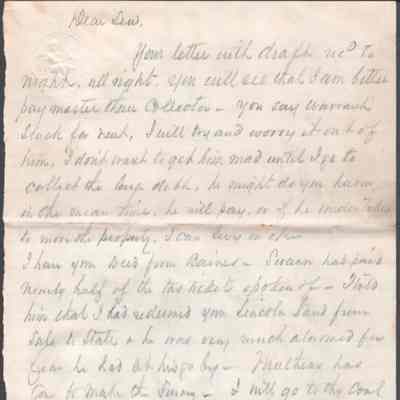 Dear Sen,
Your letter with draft recd to
night, all right. You will see that I am better
pay master than Collector - You say
Stuck for rent, I will try and worry it out of
him, I don't want to get him mad until I go to
collect the large debt, he might do you harm
in the mean time, he will pay, or if he undertakes
to move the property, I can levy on
I have your deed from Baines - has paid
nearly half of the spoken of - I told
him that I had redeemed your Lincoln Land from
Sale to State & he was very much alarmed for
fear he had let his go by - has
to make the Survey - I will go to the Coal